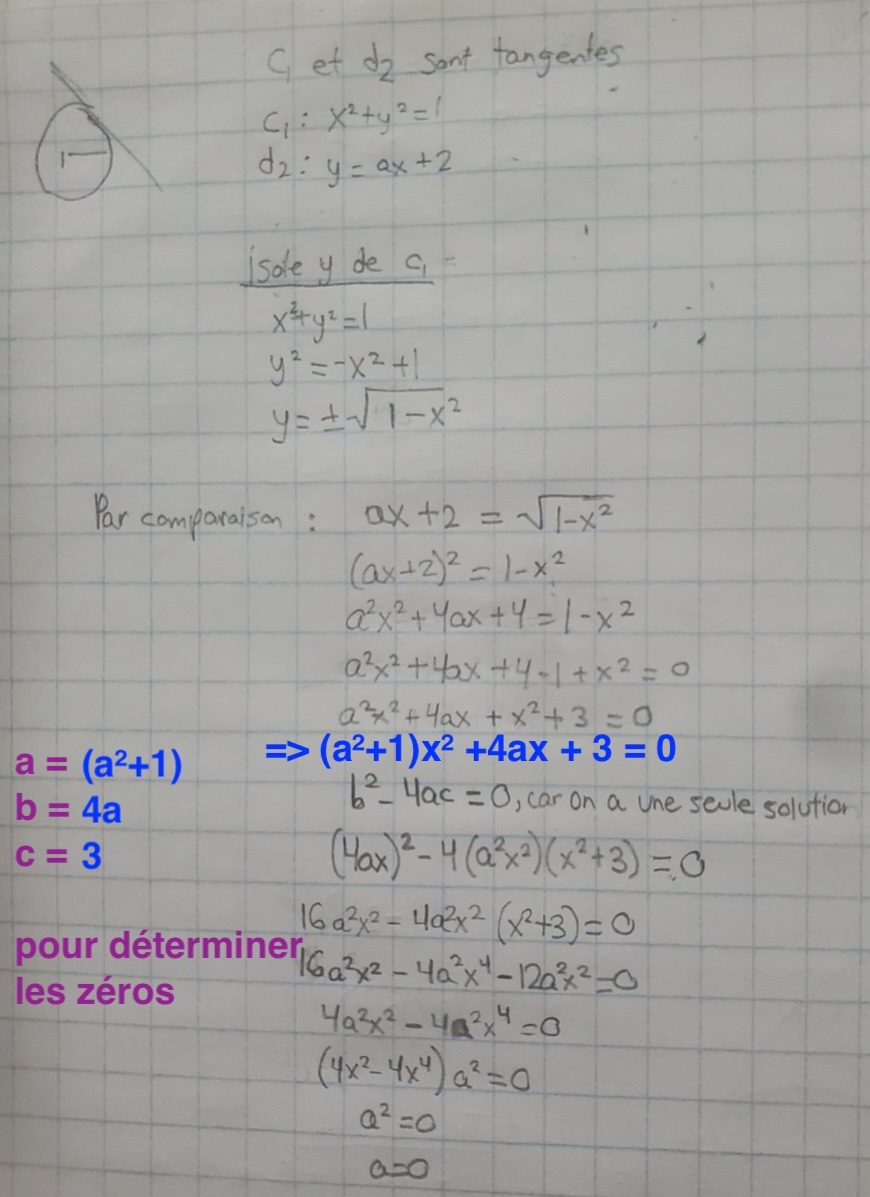 C₁ et d₂ sont tangentes
C₁ : x²+y²=1
d₂ : y = ax+2
isole y de c₁
x²+y²=1
y² = -x² +1
y = ±√1-x²
Par comparaison : ax+2 = √1-x²
(ax+2)² = 1-x²
a²x²+4ax+4=1-x²
a²x²+4ax+4-1+x² = 0
a²x²+4ax+x²+3=0
=> (a²+1)x² +4ax + 3 = 0
a = (a²+1)
b = 4a
c = 3
b²-4ac=0, car on a une seule solution
(4ax)²-4(a²x²)(x²+3)=0
16a²x²-4a²x²(x²+3)=0
pour déterminer
les zéros
16a²x²-4a²x⁴-12a²x²=0
4a²x²-4a²x⁴=0
(4x²-4x⁴)a²=0
a²=0
a=0